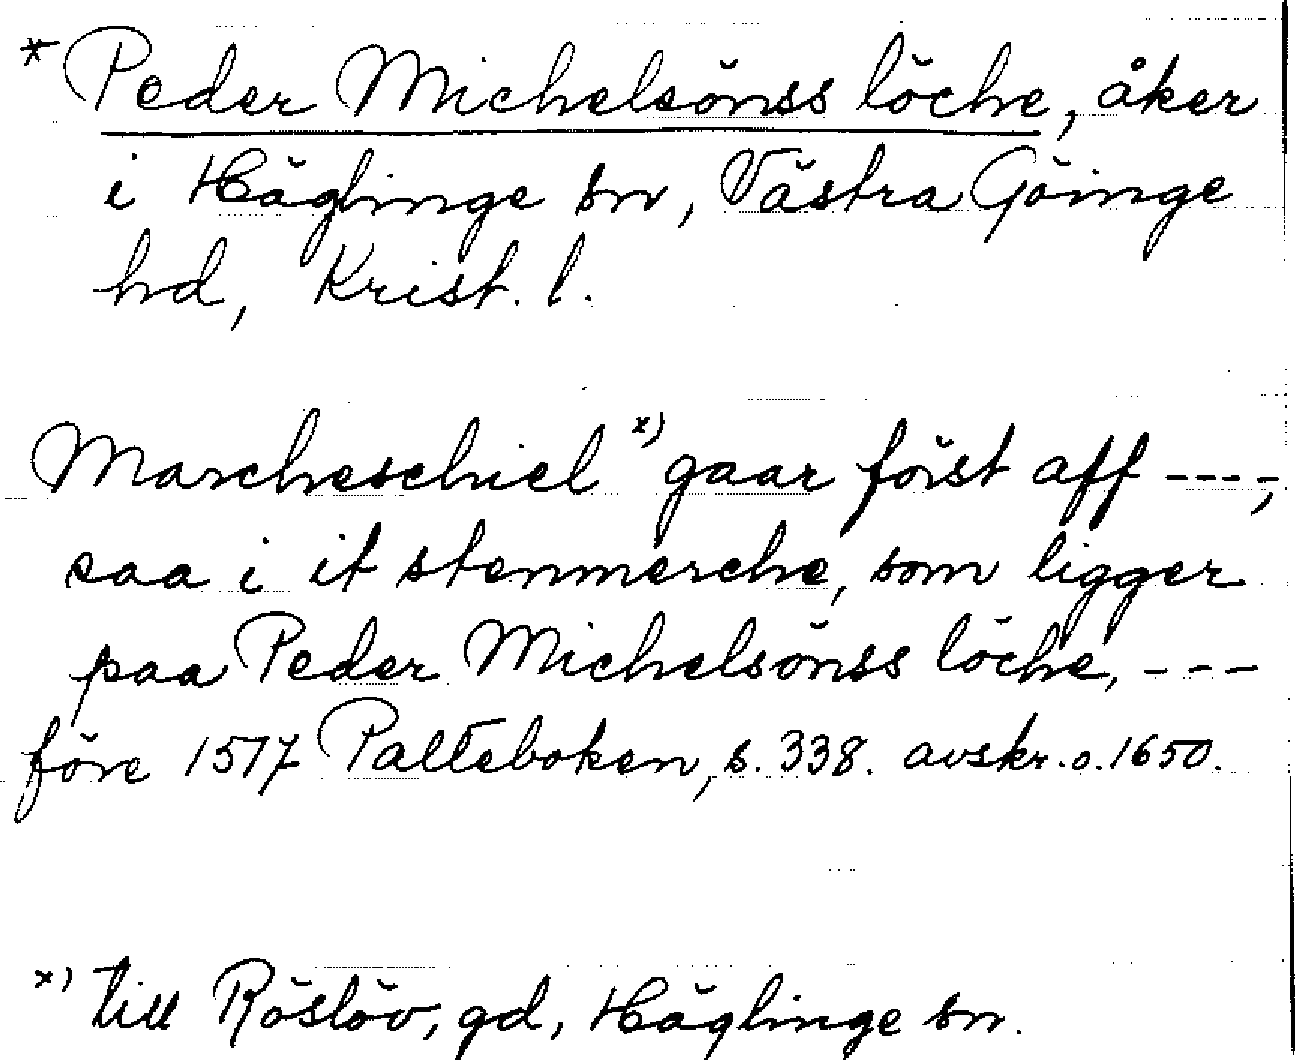 * Peder Michelsönss löche, åker
i Häglinge sn, Västra Göinge
hd, Krist. l.
Marcheschiel x) gaar först aff ----,
saa i it stenmerche, som ligger
paa Peder Michelsönss löche, ---
före 1517 Palteboken, s. 338. avskr. o. 1650.
x) till Röslöv, gd, Häglinge sn.